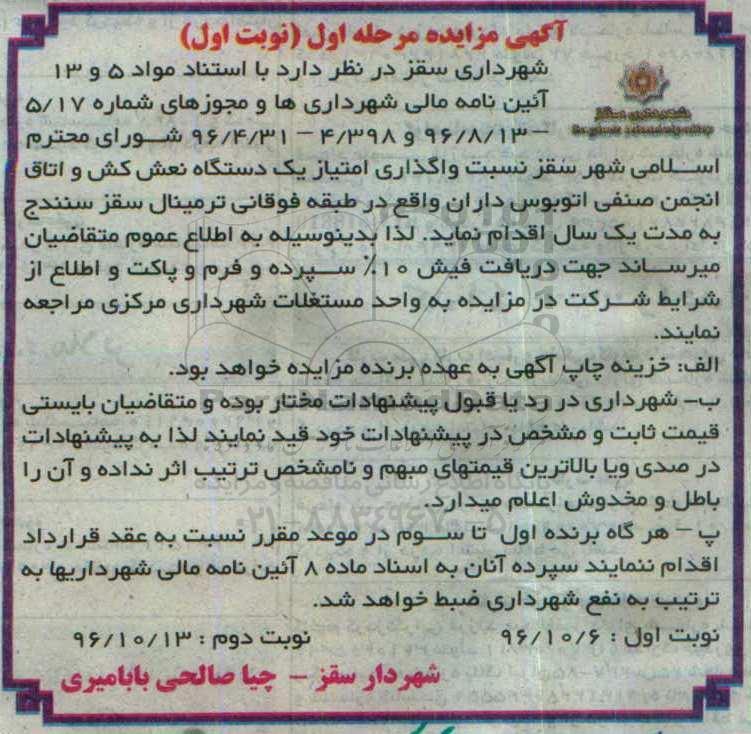 آگهی مزایده مرحله اول (نوبت اول)
شهرداری سقز در نظر دارد با استناد مواد ۵ و ۱۳
آئین نامه مالی شهرداری ها و مجوزهای شماره ۵/۱۷
– ۹۶/۸/۱۳ و ۴/۳۹۸ – ۹۶/۴/۳۱ شورای محترم
شهرداری سقز
اسلامی شهر سقز نسبت واگذاری امتیاز یک دستگاه نعش کش و اتاق
انجمن صنفی اتوبوس داران واقع در طبقه فوقانی ترمینال سقز سنندج
به مدت یک سال اقدام نماید. لذا بدینوسیله به اطلاع عموم متقاضیان
میرساند جهت دریافت فیش ۱۰٪ سپرده و فرم و پاکت و اطلاع از
شرایط شرکت در مزایده به واحد مستغلات شهرداری مرکزی مراجعه
نمایند.
الف: خزینه چاپ آگهی به عهده برنده مزایده خواهد بود.
ب– شهرداری در رد یا قبول پیشنهادات مختار بوده و متقاضیان بایستی
قیمت ثابت و مشخص در پیشنهادات خود قید نمایند لذا به پیشنهادات
در صدی ویا بالاترین قیمتهای مبهم و نامشخص ترتیب اثر نداده و آن را
باطل و مخدوش اعلام میدارد.
پ– هر گاه برنده اول تا سوم در موعد مقرر نسبت به عقد قرارداد
اقدام ننمایند سپرده آنان به اسناد ماده ۸ آئین نامه مالی شهرداریها به
ترتیب به نفع شهرداری ضبط خواهد شد.
نوبت اول : ۹۶/۱۰/۶ نوبت دوم : ۹۶/۱۰/۱۳
شهردار سقز – چیا صالحی بابامیری